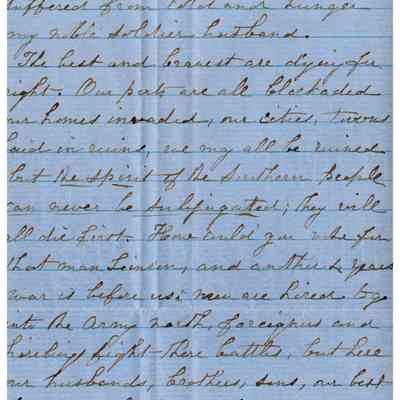 suffered from cold and hunger
my noble soldier husband.
The best and bravest are dying for
right. Our ports are all blockaded
our homes invaded, our cities, towns
laid in ruins, we may all be ruined
but the spirit of the Southern people
can never be subjugated; they will
all die first. How could you vote for
that man Lincoln, and another 4 years
war is before us; men are hired to go
into the Army north, foreigners and
hirelings fight there battles, but here
our husbands, brothers, sons, our best